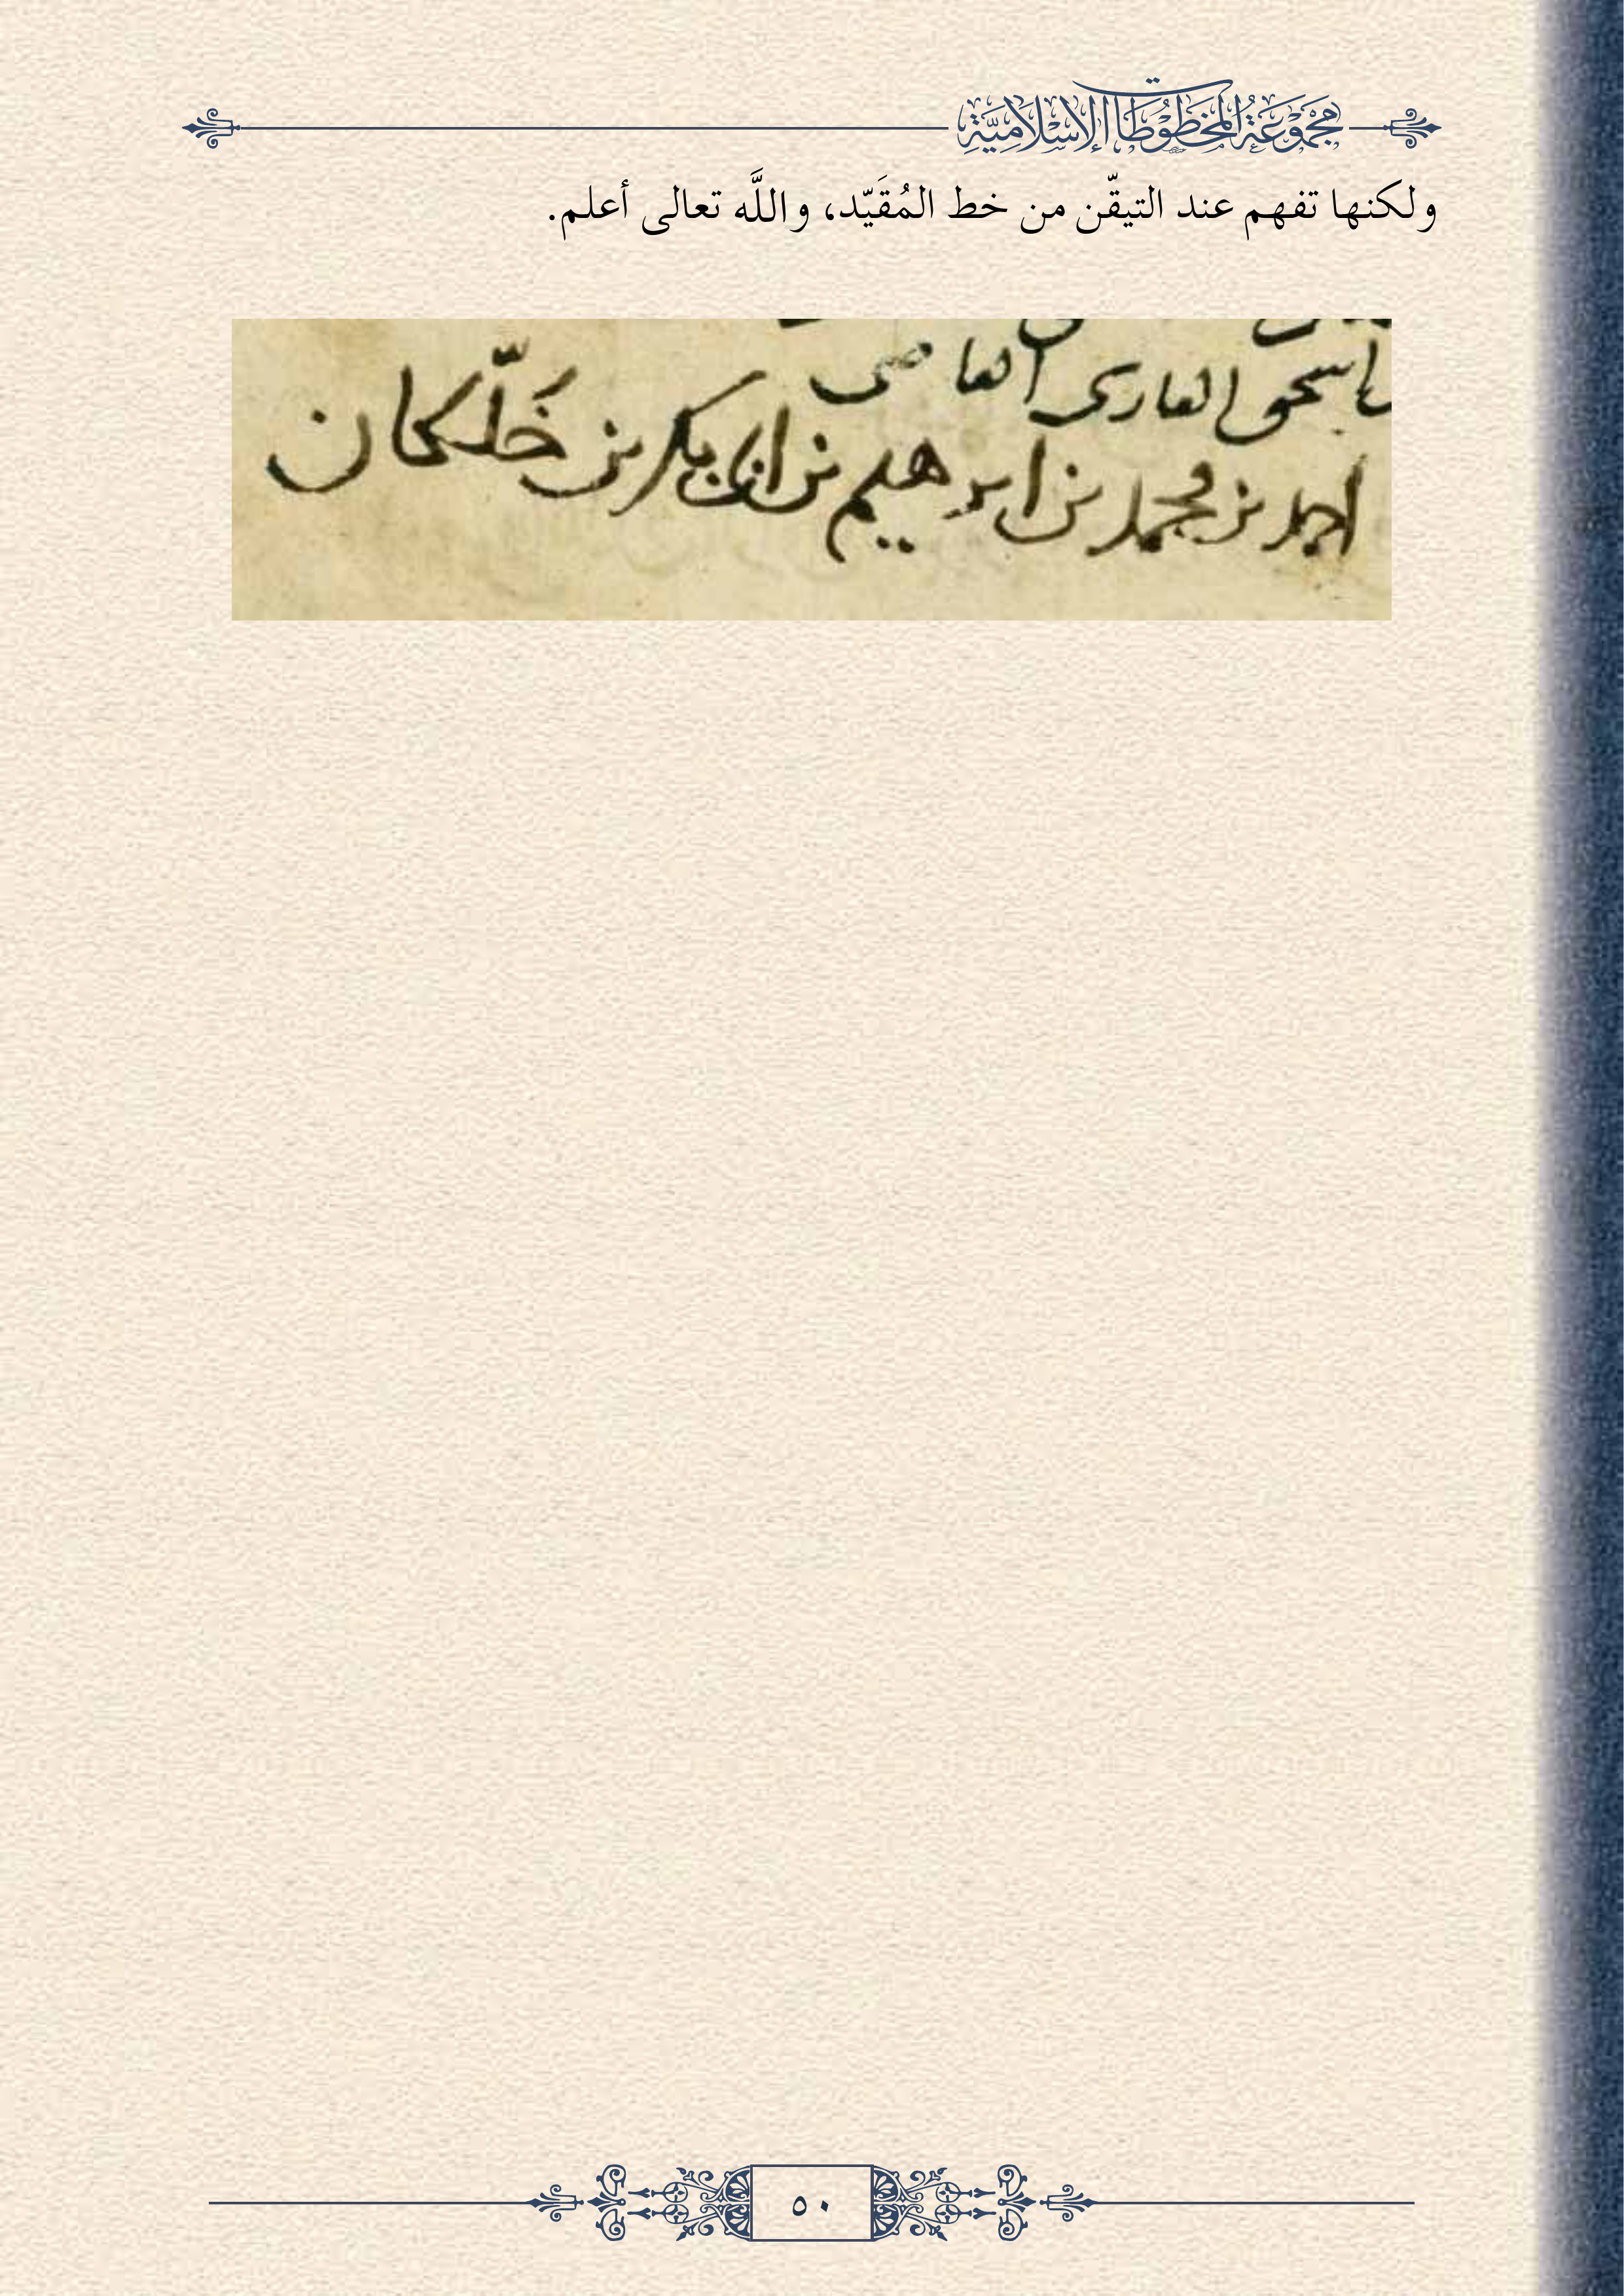 مجموعة المخطوطات الإسلامية
ولكنها تفهم عند التيقّن من خط المُقَيّد، واللَّه تعالى أعلم.
اسحق العارى العاصى
احمد بن محمد بن ابرهيم بن ابى بكر بن خَلّكان
٥٠